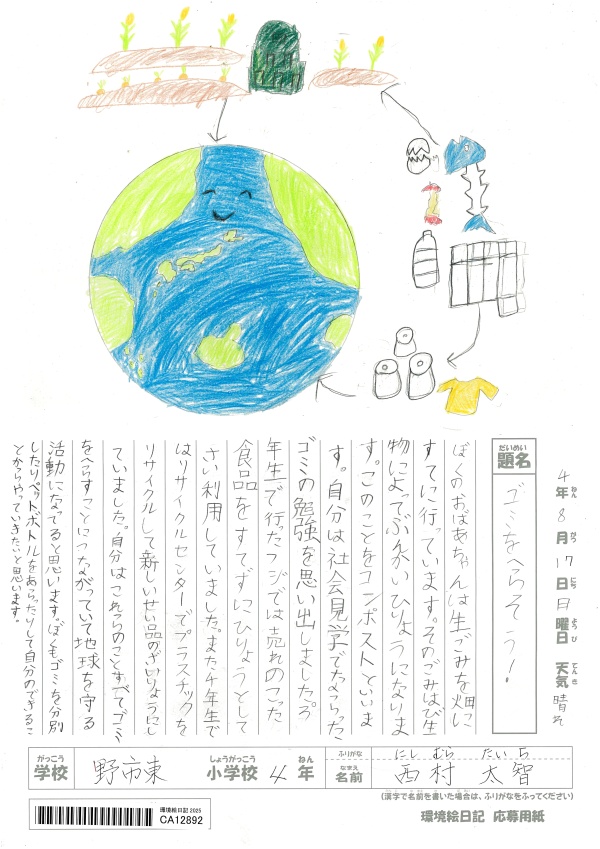 ４年８月１７日日曜日 天気 晴れ
ねん がつ にち ようび てんき
だいめい
題名
ゴミをへらそう！
ぼくのおばあちゃんは生ごみを畑に
すてに行っています。そのごみはび生
物によってぶんかいひりょうになりま
す。このことをコンポストといいま
す。自分は社会見学でならった
ゴミの勉強を思い出しました。３
年生で行ったフジでは売れのこった
食品をすてずにひりょうとして
さい利用していました。また４年生で
はリサイクルセンターでプラスチックを
リサイクルして新しいせい品のざいりょうにし
ていました。自分はこれらのことすべてゴミ
をへらすことにつながっていて地球を守る
活動になってると思います。ぼくもゴミを分別
したりペットボトルをあらったりして自分のできるこ
とからやっていきたいと思います。
がっこう しょうがっこう ねん
学校 野市東 小学校 ４年
ふりがな にしむら たいち
なまえ
名前 西村 太智
(漢字で名前を書いた場合は、ふりがなをふってください)
環境絵日記 2025
CA12892
環境絵日記 応募用紙